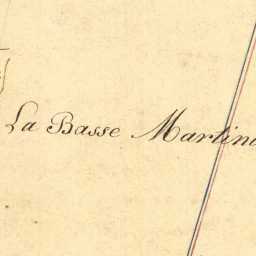 La Basse Martin